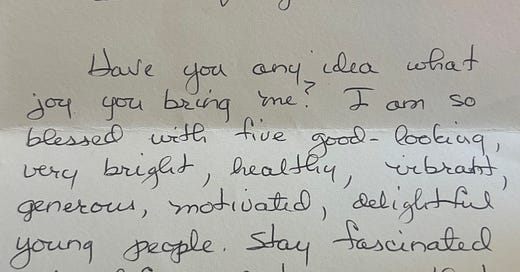 Have you any idea what
joy you bring me? I am so
blessed with five good-looking,
very bright, healthy, vibrant,
generous, motivated, delightful
young people. Stay fascinated